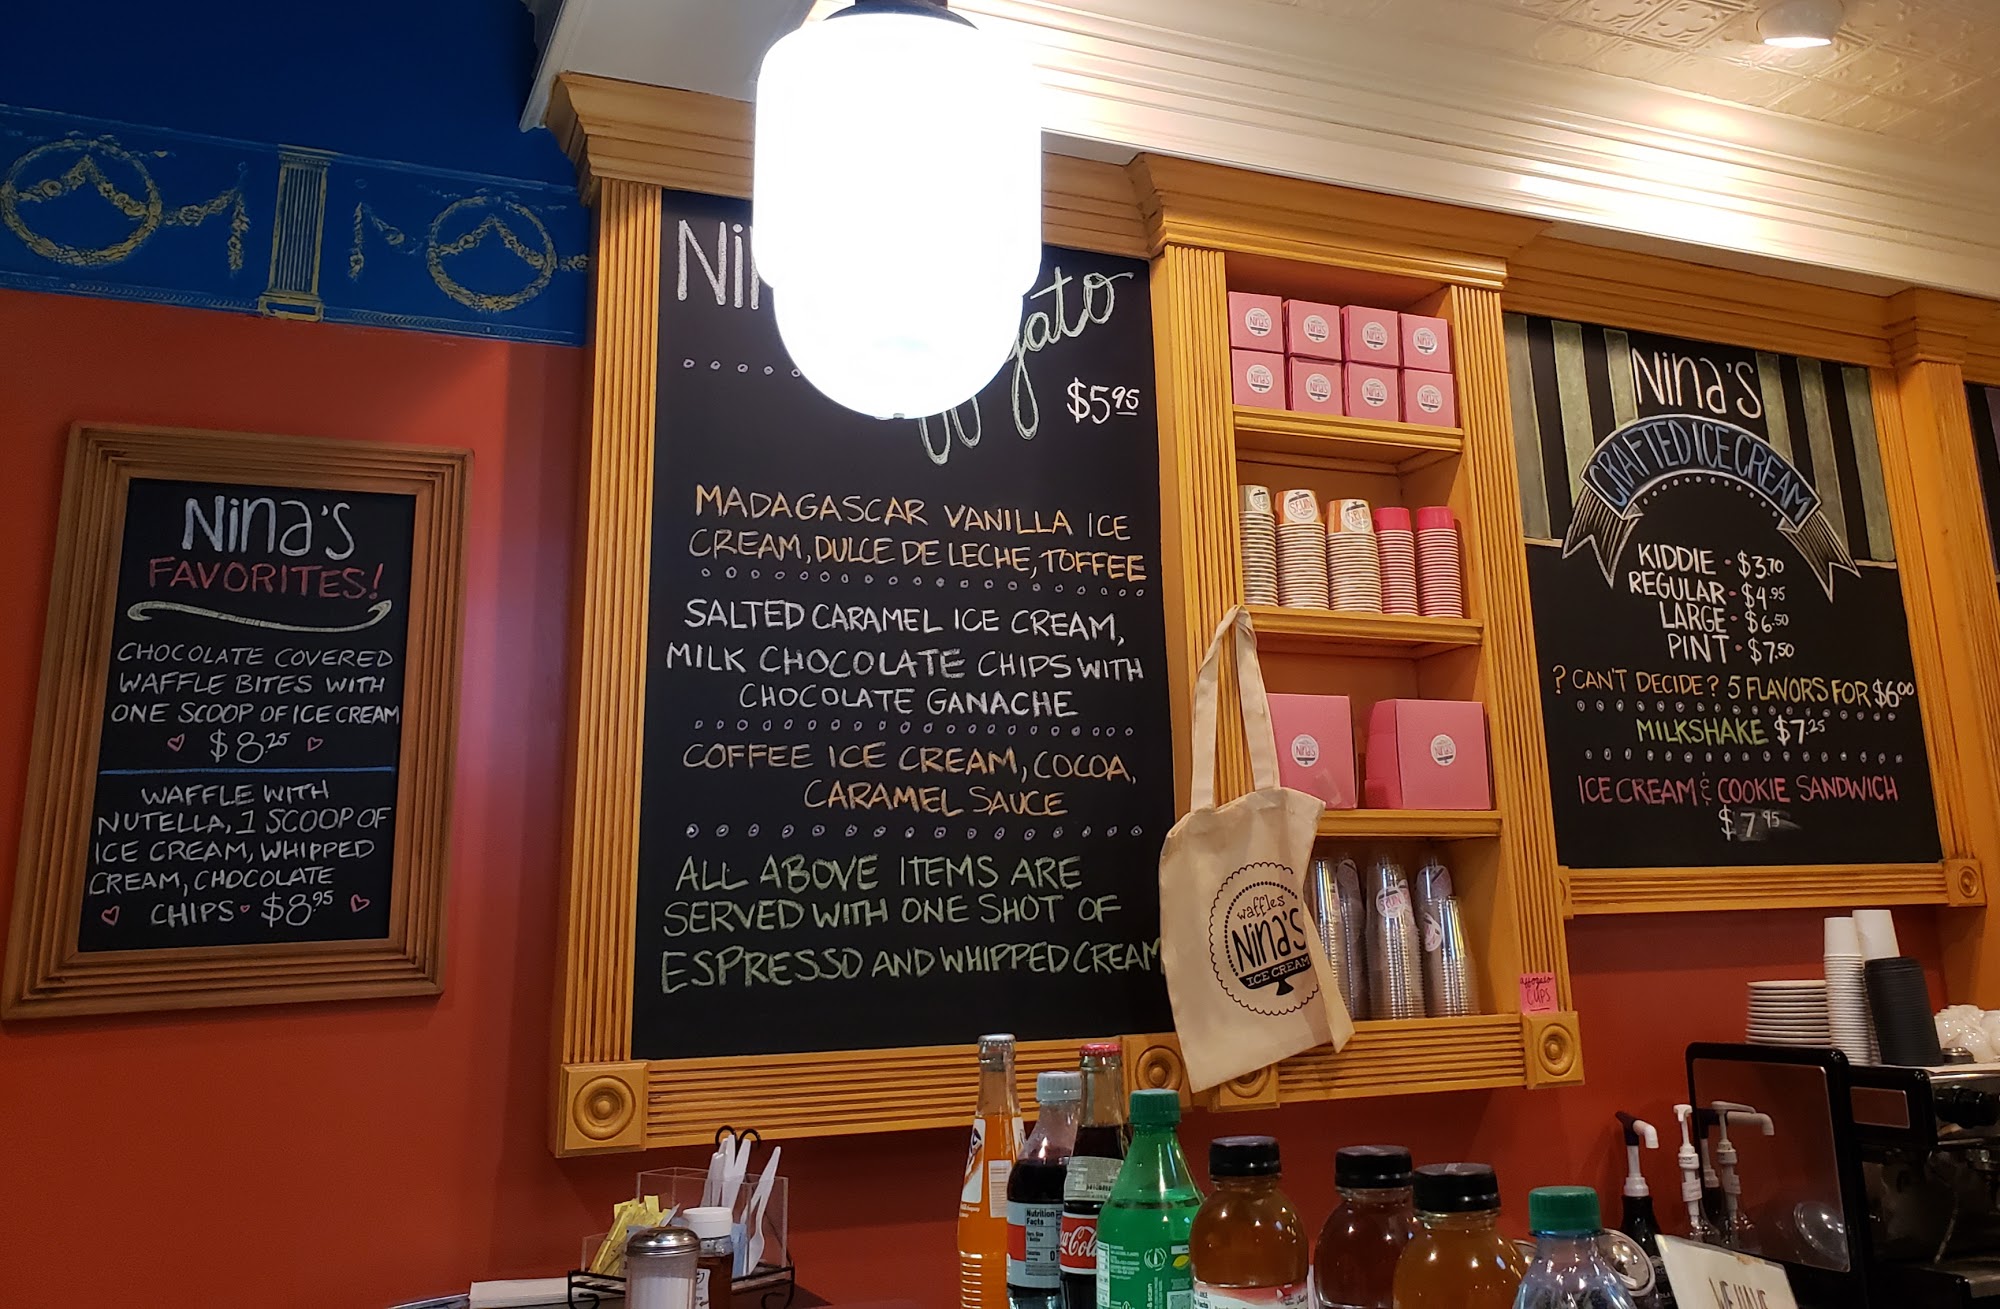 Nina's
FAVORITES!
CHOCOLATE COVERED
WAFFLE BITES WITH
ONE SCOOP OF ICE CREAM
$8.25
WAFFLE WITH
NUTELLA, 1 SCOOP OF
ICE CREAM, WHIPPED
CREAM, CHOCOLATE
CHIPS • $8.95
$5.95
MADAGASCAR VANILLA ICE
CREAM, DULCE DE LECHE, TOFFEE
SALTED CARAMEL ICE CREAM,
MILK CHOCOLATE CHIPS WITH
CHOCOLATE GANACHE
COFFEE ICE CREAM, COCOA,
CARAMEL SAUCE
ALL ABOVE ITEMS ARE
SERVED WITH ONE SHOT OF
ESPRESSO AND WHIPPED CREAM
waffles
Nina's
ICE CREAM
affogato
CUPS
Nina's
CRAFTED ICE CREAM
KIDDIE • $3.70
REGULAR • $4.95
LARGE • $6.50
PINT • $7.50
? CAN'T DECIDE? 5 FLAVORS FOR $6.00
MILKSHAKE $7.25
ICE CREAM & COOKIE SANDWICH
$7.95
Nutrition
Facts
Coca-Cola